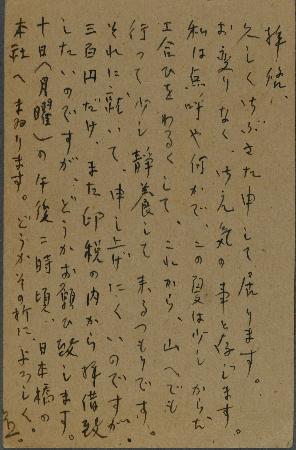 拝啓、
久しくごぶさた申して居ります。
お変りなく、御元気の事と存じます。
私は点呼や何かで、この夏は少しからだ
工合ひをわるくして、これから、山へでも
行って少し静養して来るつもりです。
それに就いて、申し上げにくいのですが
三百円だけ、また印税の内から拝借致
したいのですが、どうかお願ひ致します。
十日(月曜)の午後二時頃、日本橋の
本社へまゐります。どうかその折に、よろしく。